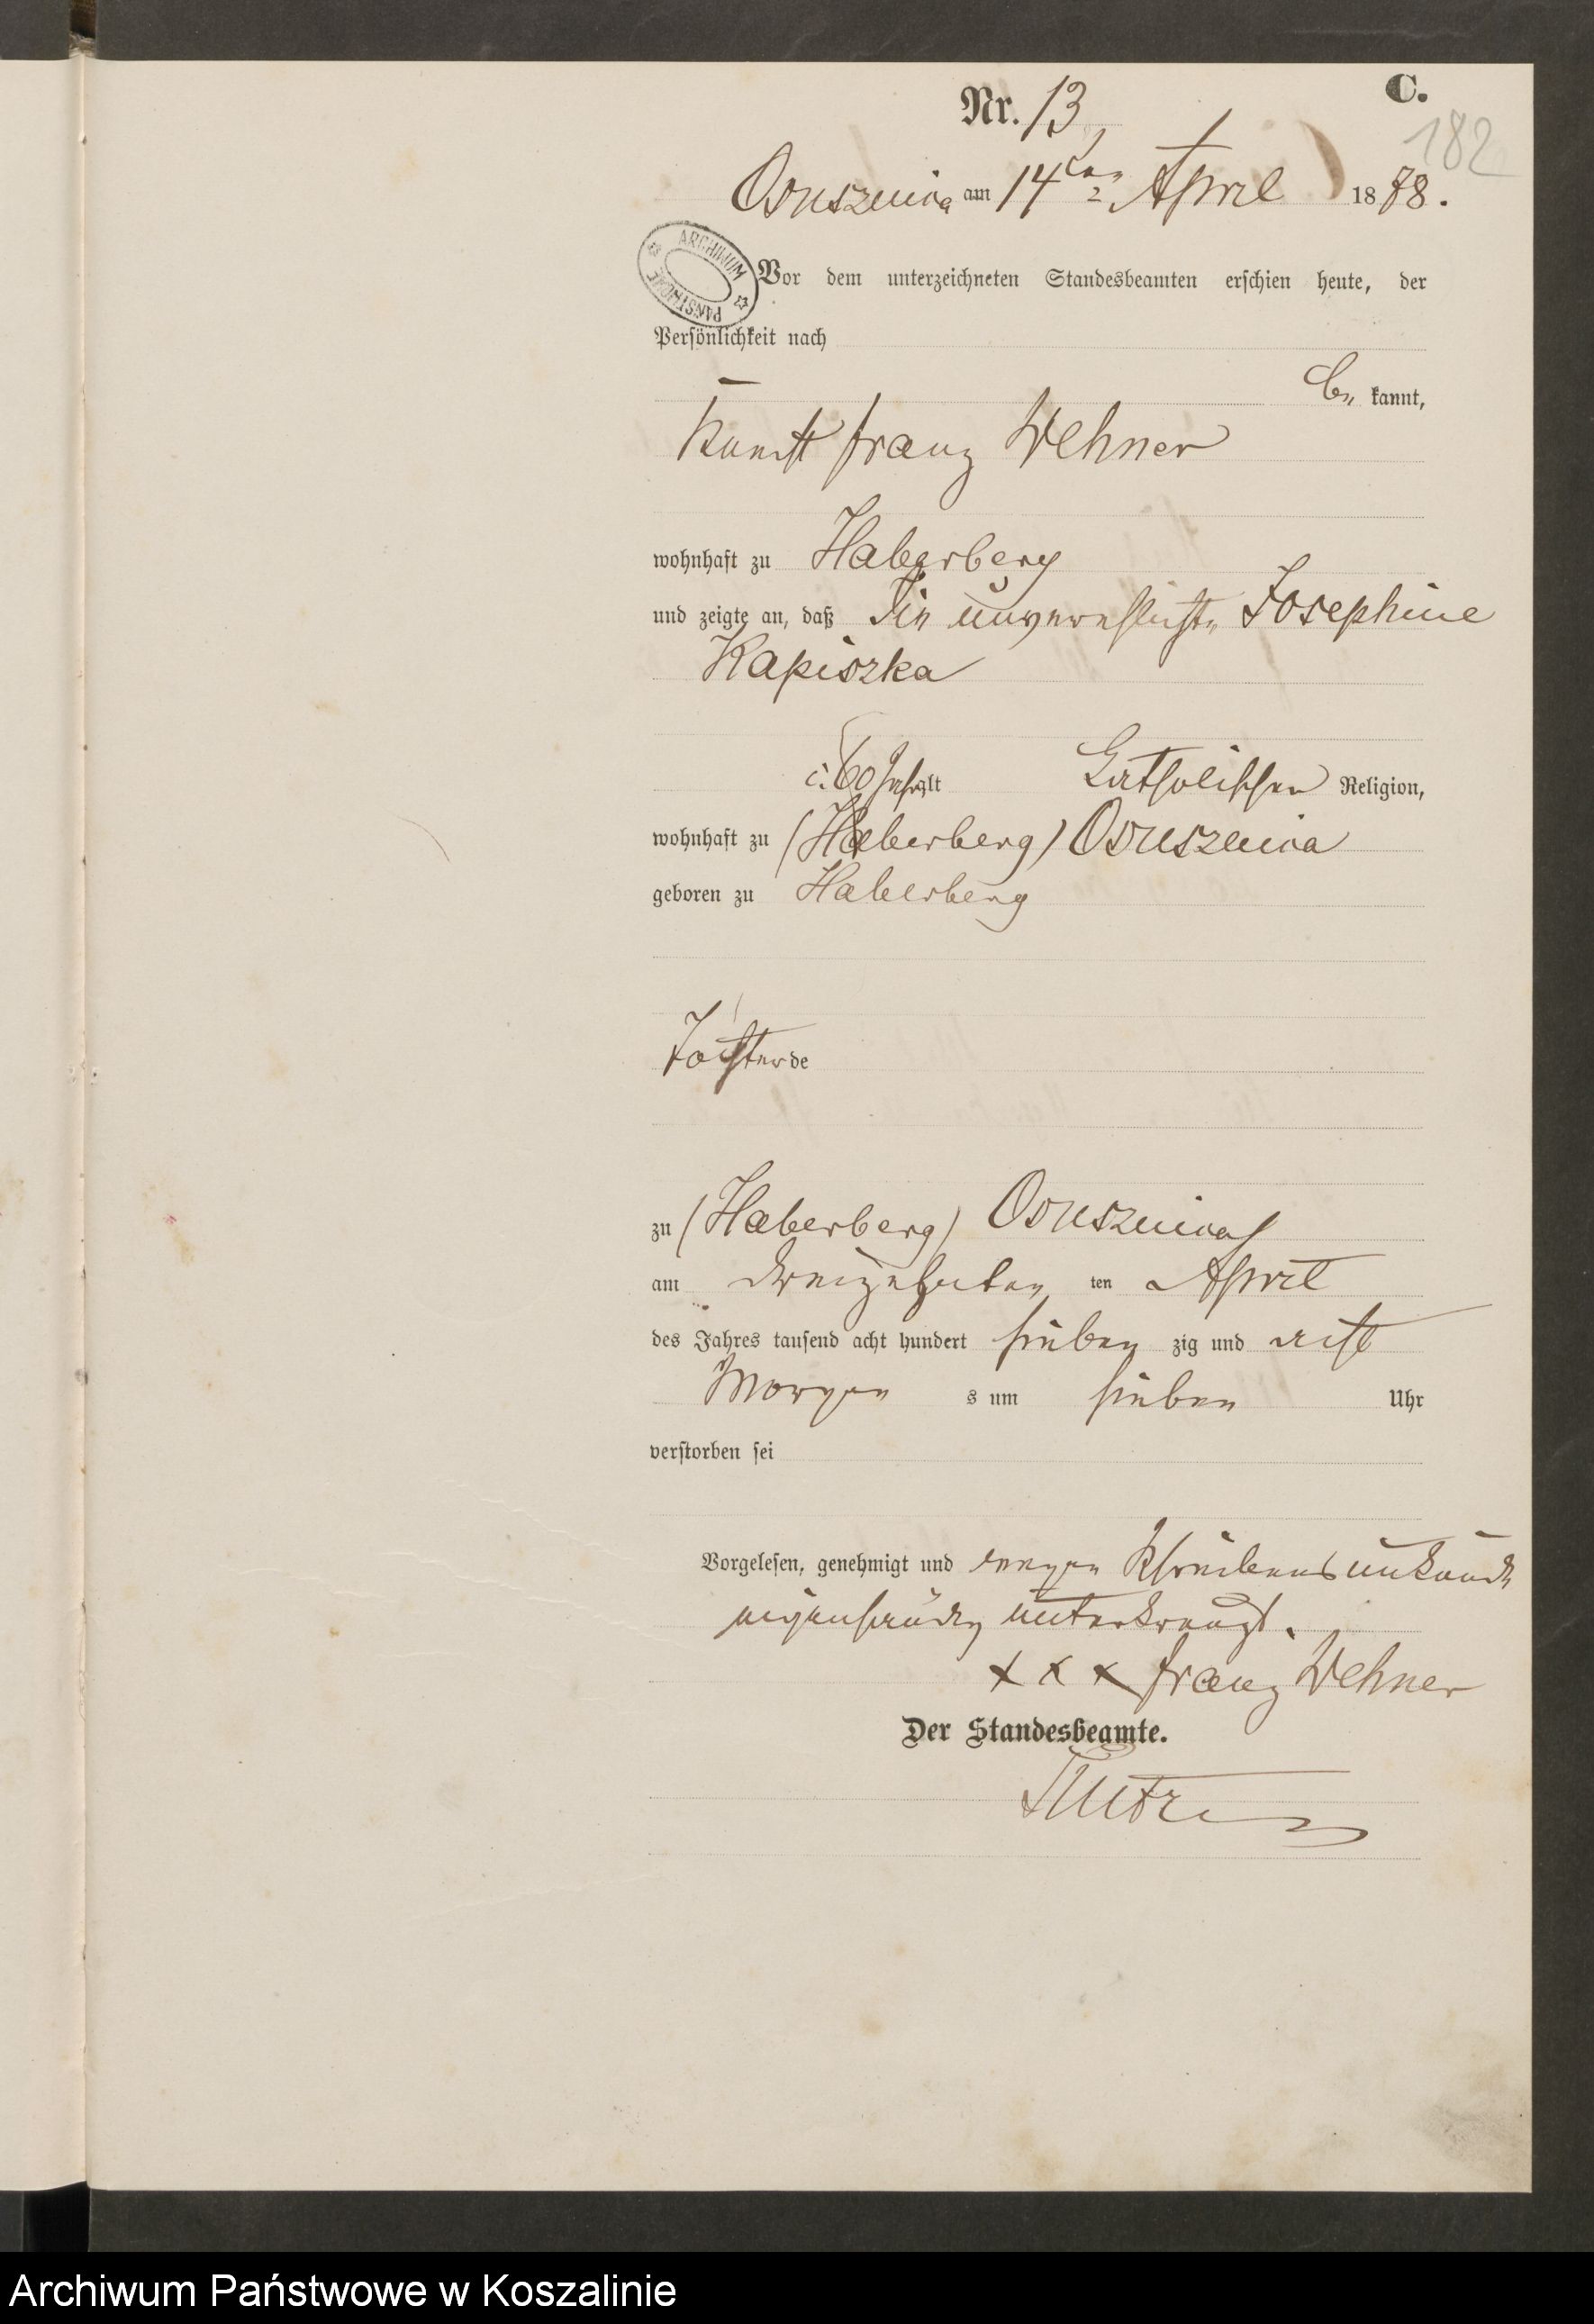 C.
Nr. 13
182
Osuszenica am 14ten April 1878.
ARCHIWUM PAŃSTWOWE
Vor dem unterzeichneten Standesbeamten erschien heute, der
Persönlichkeit nach
be kannt,
Franz Wehner
wohnhaft zu Haberberg
und zeigte an, daß die unverehlichte Josephine
Kapiszka
60 Jahr alt katholischer Religion,
wohnhaft zu (Haberberg) Osuszenica
geboren zu Haberberg
Tochter de
zu (Haberberg) Osuszenica
am dreizehnten ten April
des Jahres tausend acht hundert sieben zig und acht
Morgen s um sieben Uhr
verstorben sei
Vorgelesen, genehmigt und wegen Schreibensunkunde
eigenhändig unterkreuzt.
x x x Franz Wehner
Der Standesbeamte.
Archiwum Państwowe w Koszalinie